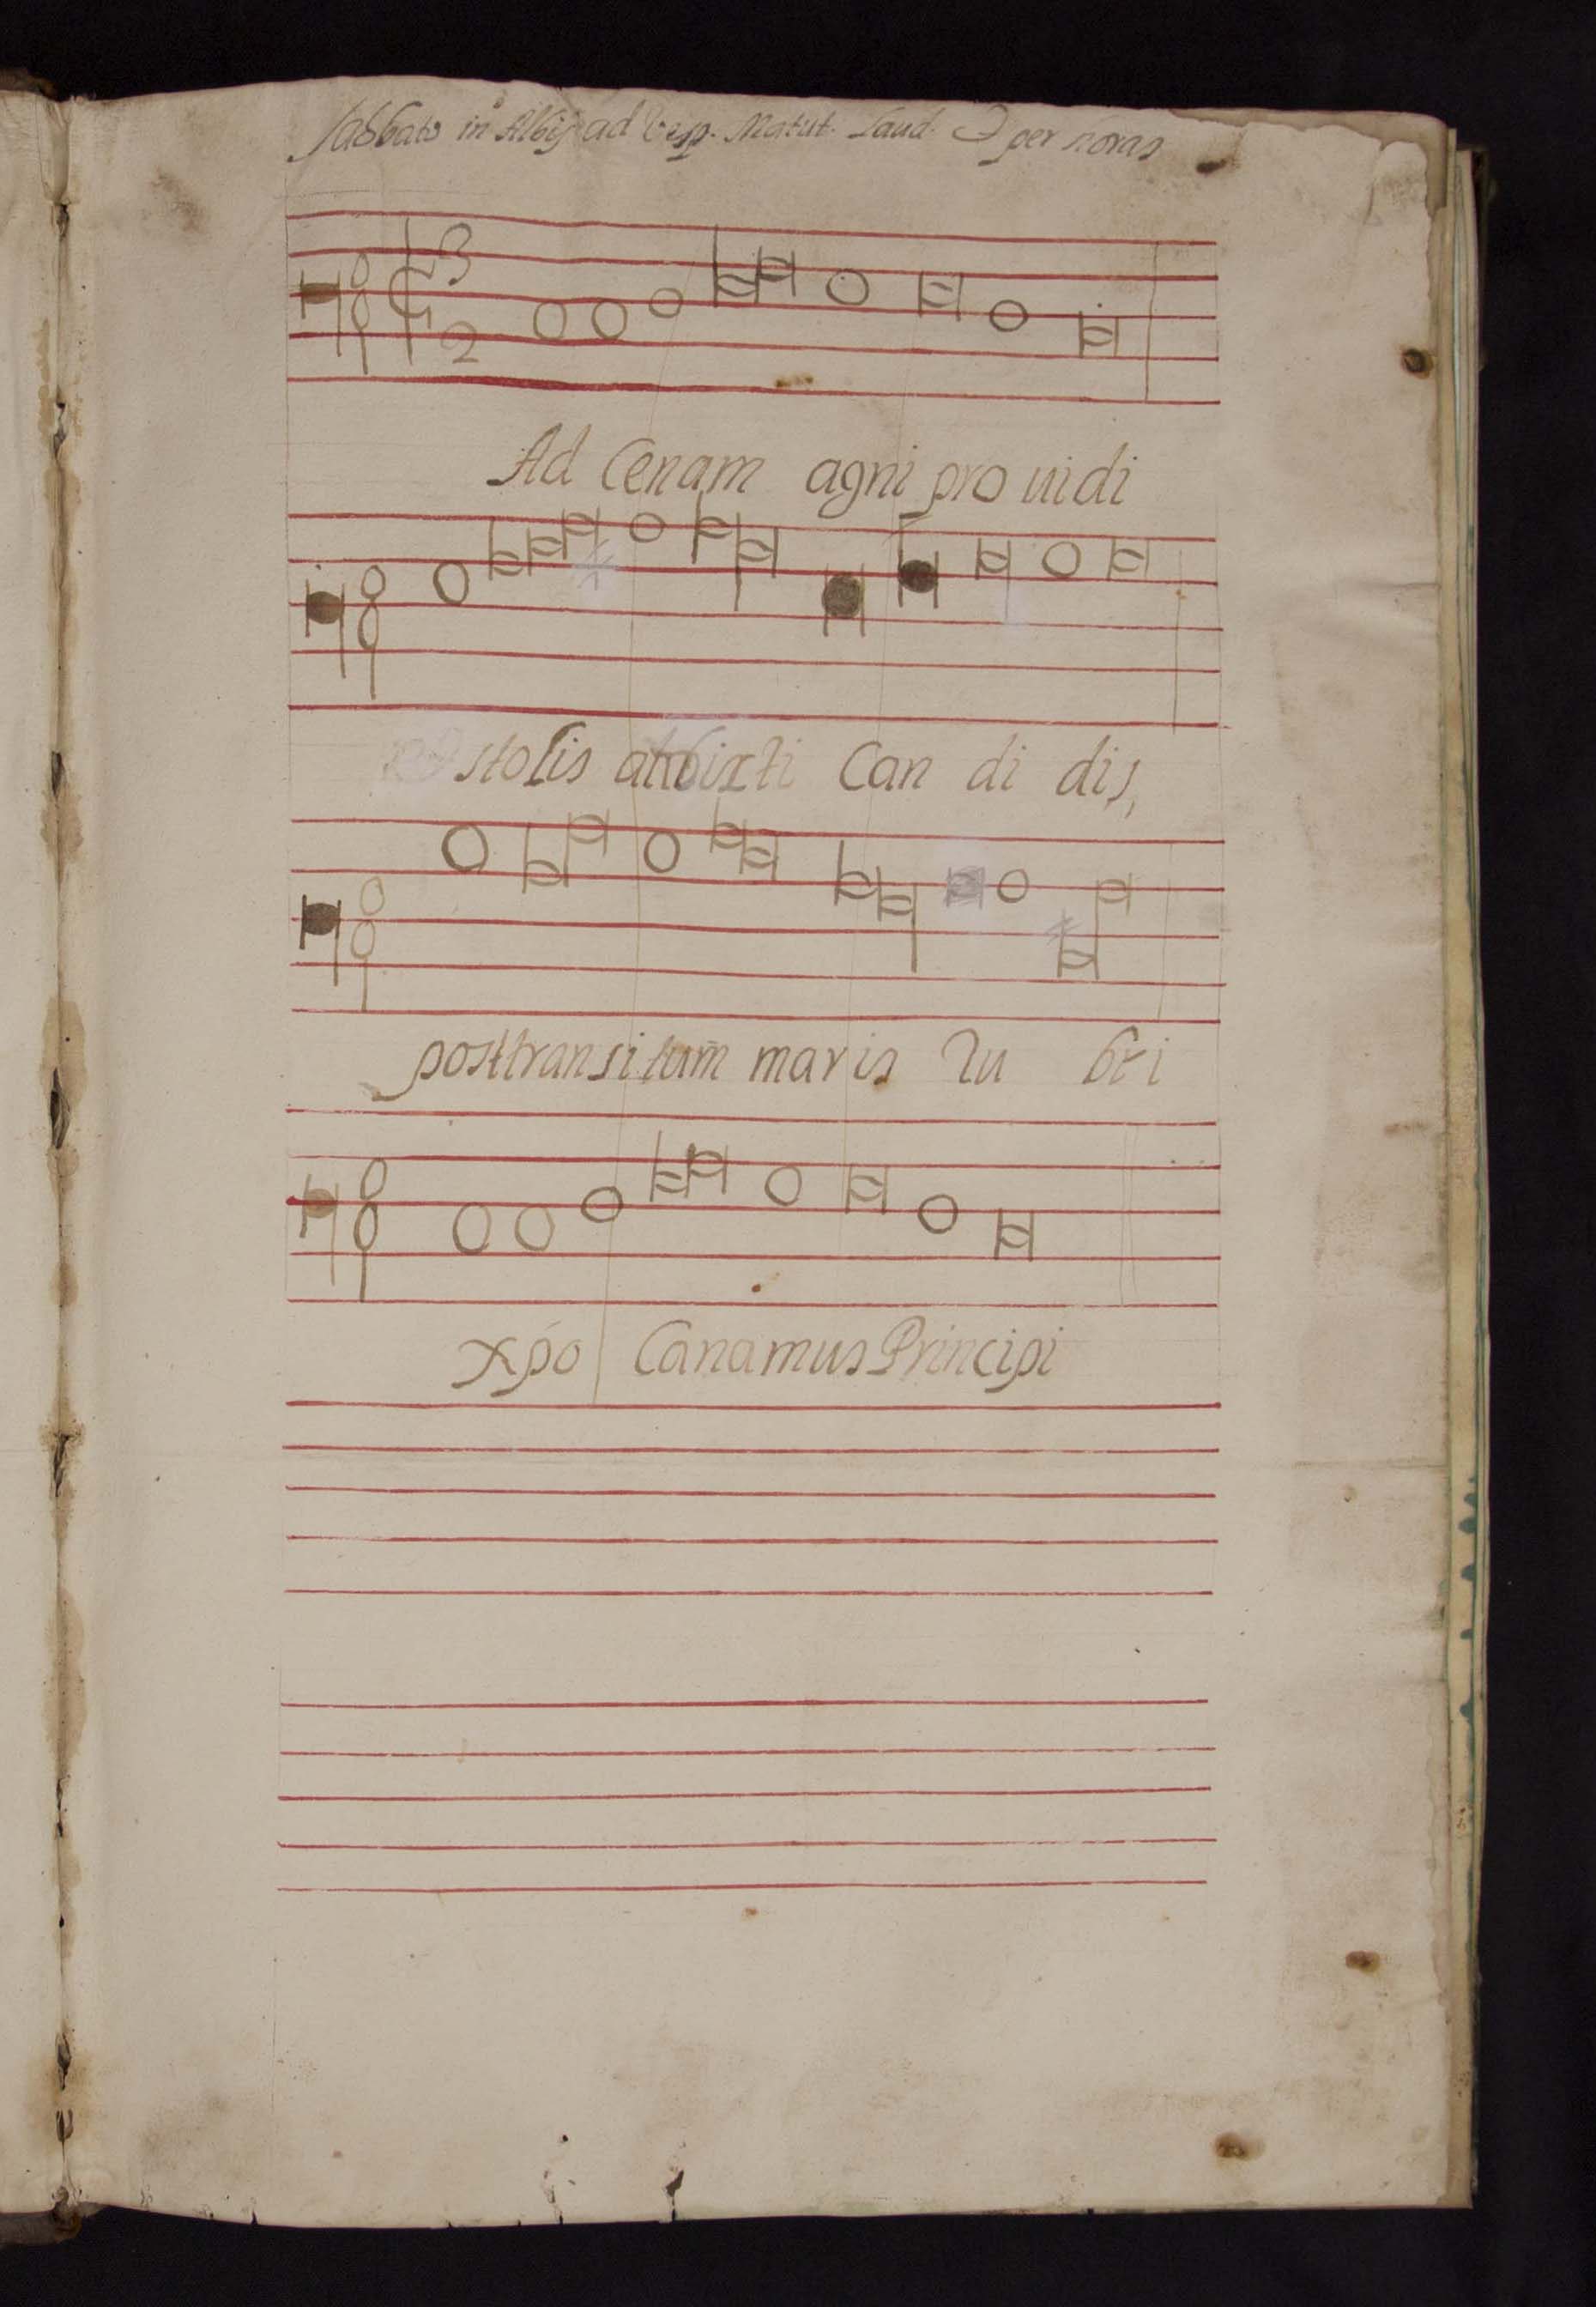 Sabbato in Albis ad Vesp. Matut. Laud. & per horas
3
2
Ad Cenam agni pro uidi
stolis albis Can di dis,
post transitum maris Ru bri
xpo Canamus Principi